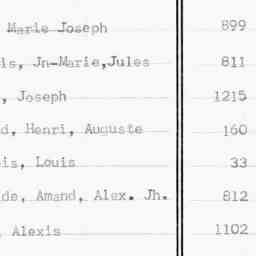 Marie Joseph 899
is, Jn-Marie,Jules 811
, Joseph 1215
d, Henri, Auguste 160
is, Louis 33
de, Amand, Alex. Jh. 812
, Alexis 1102